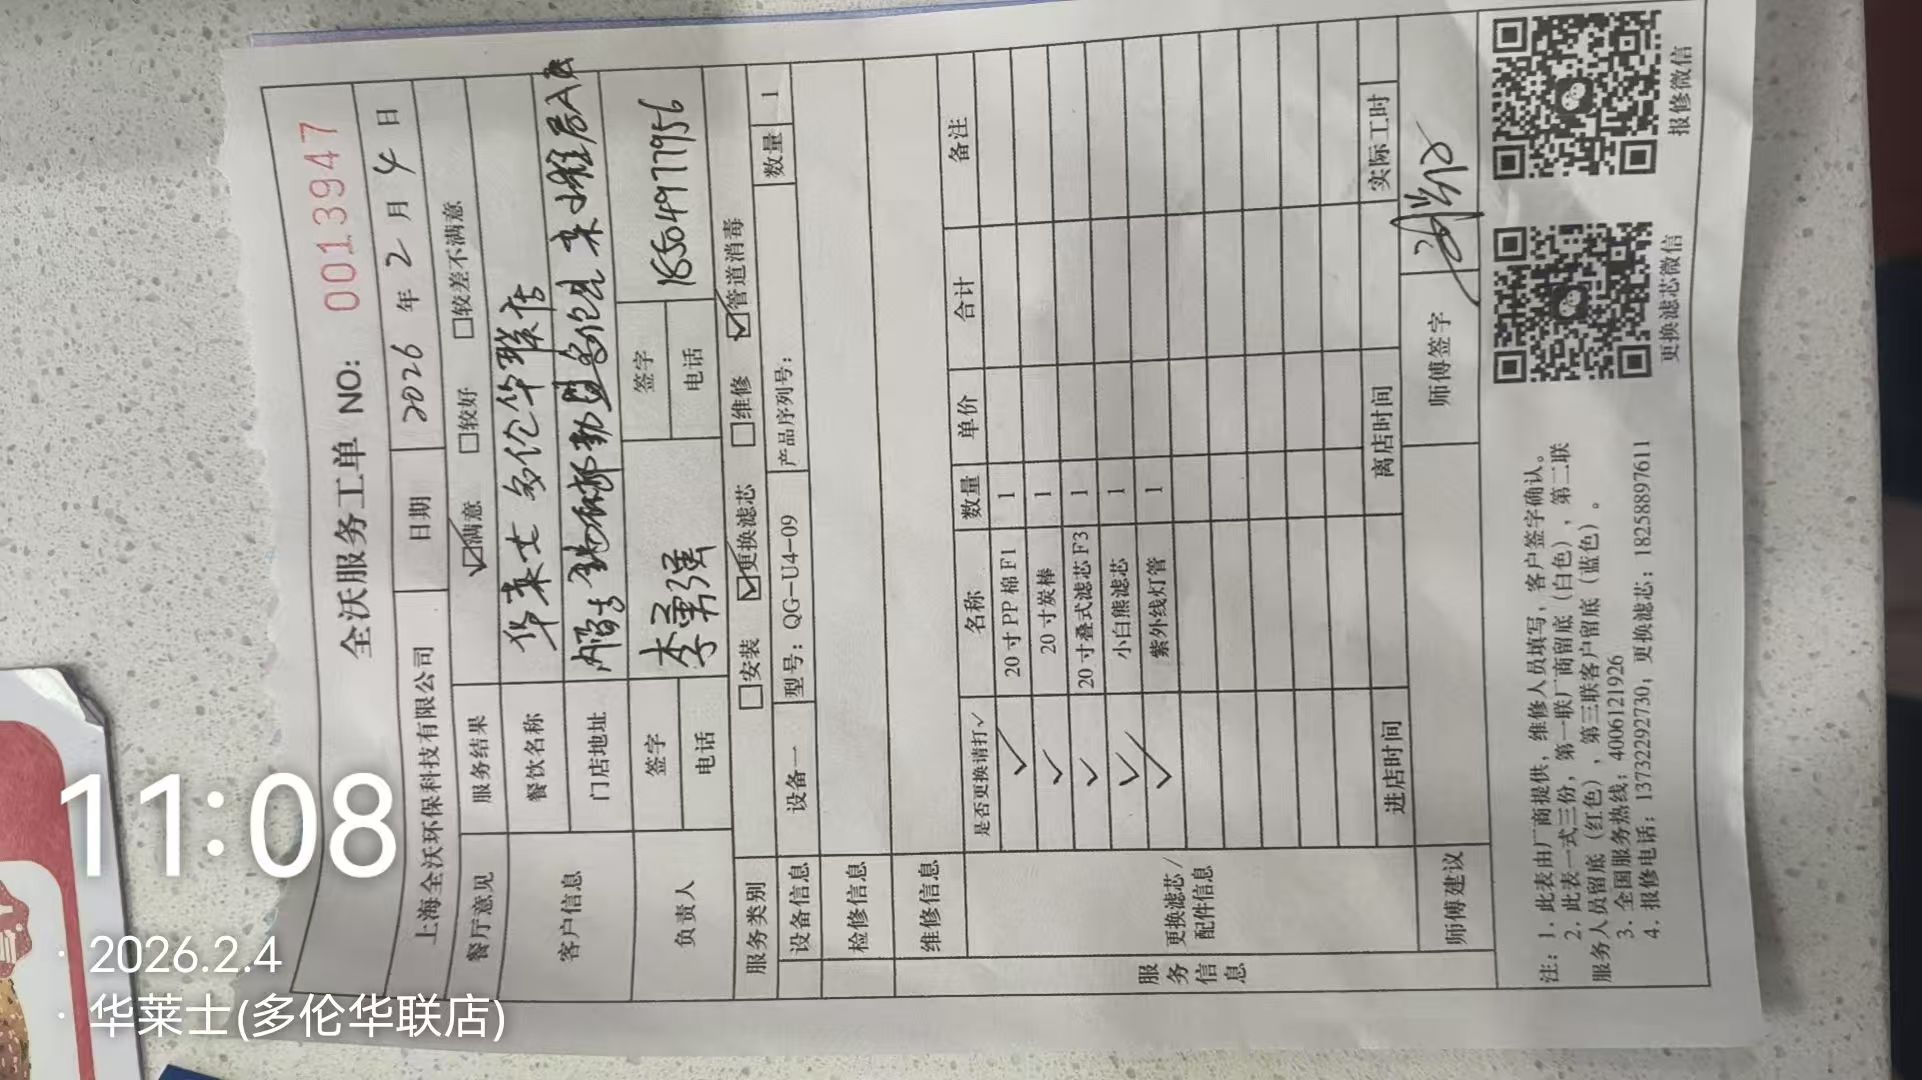 全沃服务工单 NO: 0013947
上海全沃环保科技有限公司 日期 2026 年 2 月 4 日
餐厅意见 服务结果 ☑满意 □较好 □较差不满意
客户信息 餐饮名称 华莱士多伦华联店
门店地址 多伦县
负责人 签字 李勇强 签字
电话 电话 18504977956
服务类别 □安装 ☑更换滤芯 □维修 ☑管道消毒
设备信息 设备一 型号:QG-U4-09 产品序列号: 数量 1
检修信息
维修信息
服务信息
更换滤芯/配件信息
是否更换请打✓ 名称 数量 单价 合计 备注
✓ 20 寸 PP 棉 F1 1
✓ 20 寸炭棒 1
✓ 20 寸叠式滤芯 F3 1
✓ 小白熊滤芯 1
✓ 紫外线灯管 1
进店时间 离店时间 实际工时
师傅建议 师傅签字
注:1. 此表由厂商提供,维修人员填写,客户签字确认。
2. 此表一式三份,第一联厂商留底(白色),第二联
服务人员留底(红色),第三联客户留底(蓝色)。
3. 全国服务热线:4006121926
4. 报修电话:13732292730,更换滤芯:18258897611
更换滤芯微信
报修微信
11:08
· 2026.2.4
· 华莱士(多伦华联店)